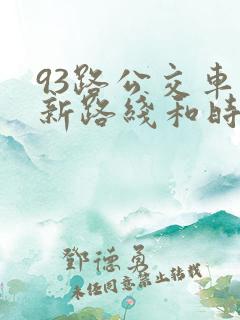 93路公交车
新路线和时
鄧德勇
未经同意禁止转载